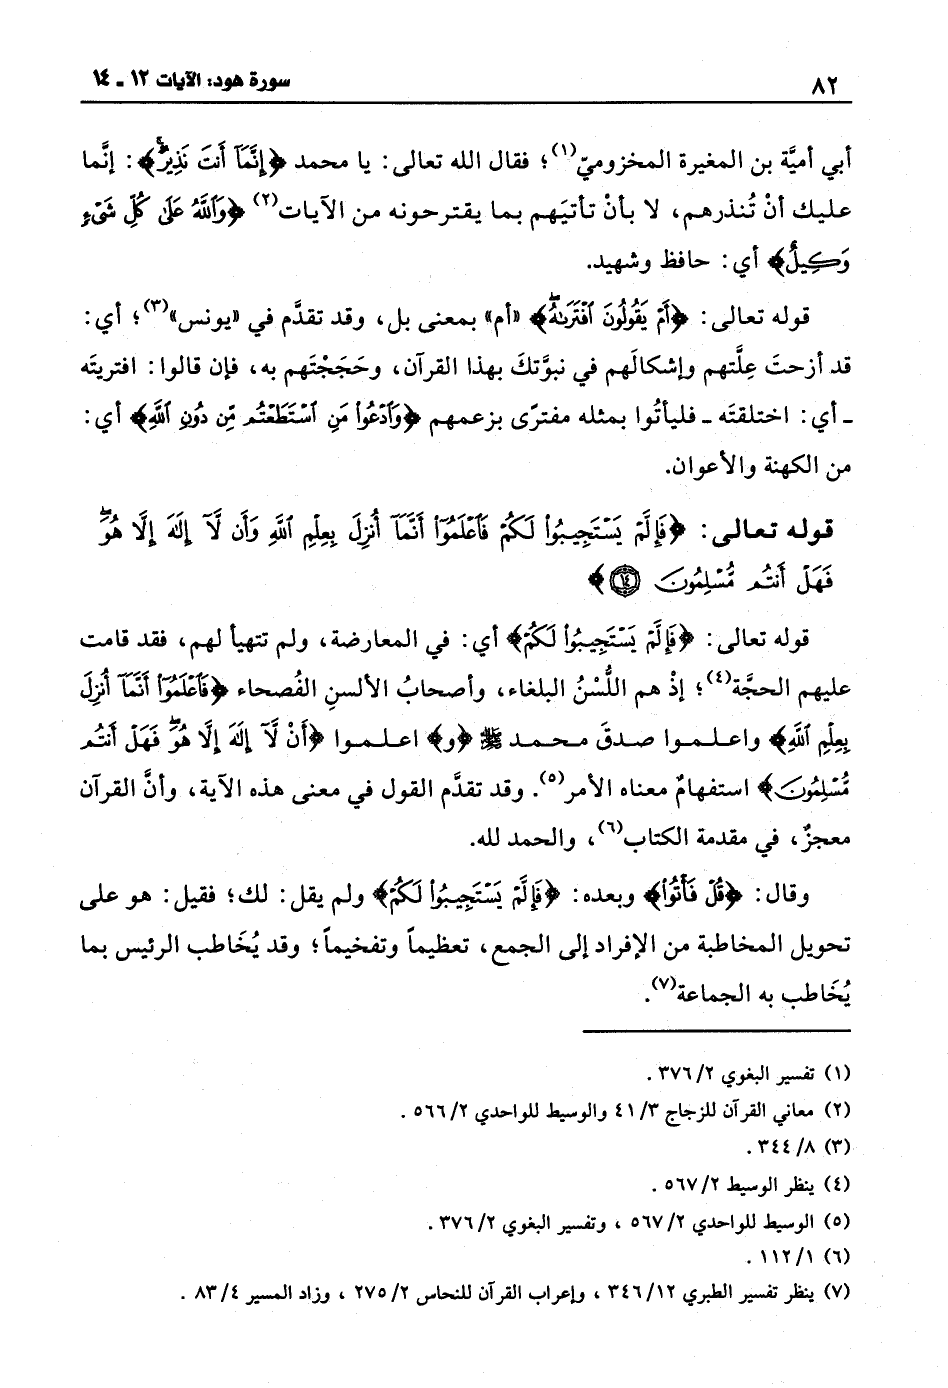 ٨٢
سورة هود: الآيات ١٢ ـ ١٤
أبي أميَّة بن المغيرة المخزوميّ(١)؛ فقال الله تعالى: يا محمد ﴿إِنَّمَآ أَنتَ نَذِيرٌۚ﴾: إنَّما
عليك أنْ تُنذرهم، لا بأنْ تأتيَهم بما يقترحونه من الآيات(٢) ﴿وَٱللَّهُ عَلَىٰ كُلِّ شَىْءٍ
وَكِيلٌ﴾ أي: حافظ وشهيد.
قوله تعالى: ﴿أَمْ يَقُولُونَ ٱفْتَرَىٰهُۖ﴾ «أم» بمعنى بل، وقد تقدَّم في «يونس»(٣)؛ أي:
قد أزحتَ عِلَّتهم وإشكالَهم في نبوَّتكَ بهذا القرآن، وحَجَجْتَهم به، فإن قالوا: افتريتَه
ـ أي: اختلقتَه ـ فليأتُوا بمثله مفترًى بزعمهم ﴿وَٱدْعُوا۟ مَنِ ٱسْتَطَعْتُم مِّن دُونِ ٱللَّهِ﴾ أي:
من الكهنة والأعوان.
قوله تعالى: ﴿فَإِلَّمْ يَسْتَجِيبُوا۟ لَكُمْ فَٱعْلَمُوٓا۟ أَنَّمَآ أُنزِلَ بِعِلْمِ ٱللَّهِ وَأَن لَّآ إِلَٰهَ إِلَّا هُوَۖ
فَهَلْ أَنتُم مُّسْلِمُونَ ١٤﴾
قوله تعالى: ﴿فَإِلَّمْ يَسْتَجِيبُوا۟ لَكُمْ﴾ أي: في المعارضة، ولم تتهيأ لهم، فقد قامت
عليهم الحجَّة(٤)؛ إذْ هم اللُّسْنُ البلغاء، وأصحابُ الألسنِ الفُصحاء ﴿فَٱعْلَمُوٓا۟ أَنَّمَآ أُنزِلَ
بِعِلْمِ ٱللَّهِ﴾ واعلـمـوا صدقَ مـحـمـد ﷺ ﴿و﴾ اعلـمـوا ﴿أَنْ لَّآ إِلَٰهَ إِلَّا هُوَۖ فَهَلْ أَنتُم
مُّسْلِمُونَ﴾ استفهامٌ معناه الأمر(٥). وقد تقدَّم القول في معنى هذه الآية، وأنَّ القرآن
معجزٌ، في مقدمة الكتاب(٦)، والحمد لله.
وقال: ﴿قُلْ فَأْتُوا۟﴾ وبعده: ﴿فَإِلَّمْ يَسْتَجِيبُوا۟ لَكُمْ﴾ ولم يقل: لك؛ فقيل: هو على
تحويل المخاطبة من الإفراد إلى الجمع، تعظيماً وتفخيماً؛ وقد يُخَاطب الرئيس بما
يُخَاطب به الجماعة(٧).
(١) تفسير البغوي ٢/ ٣٧٦ .
(٢) معاني القرآن للزجاج ٣/ ٤١ والوسيط للواحدي ٢/ ٥٦٦ .
(٣) ٨/ ٣٤٤ .
(٤) ينظر الوسيط ٢/ ٥٦٧ .
(٥) الوسيط للواحدي ٢/ ٥٦٧ ، وتفسير البغوي ٢/ ٣٧٦ .
(٦) ١/ ١١٢ .
(٧) ينظر تفسير الطبري ١٢/ ٣٤٦ ، وإعراب القرآن للنحاس ٢/ ٢٧٥ ، وزاد المسير ٤/ ٨٣ .